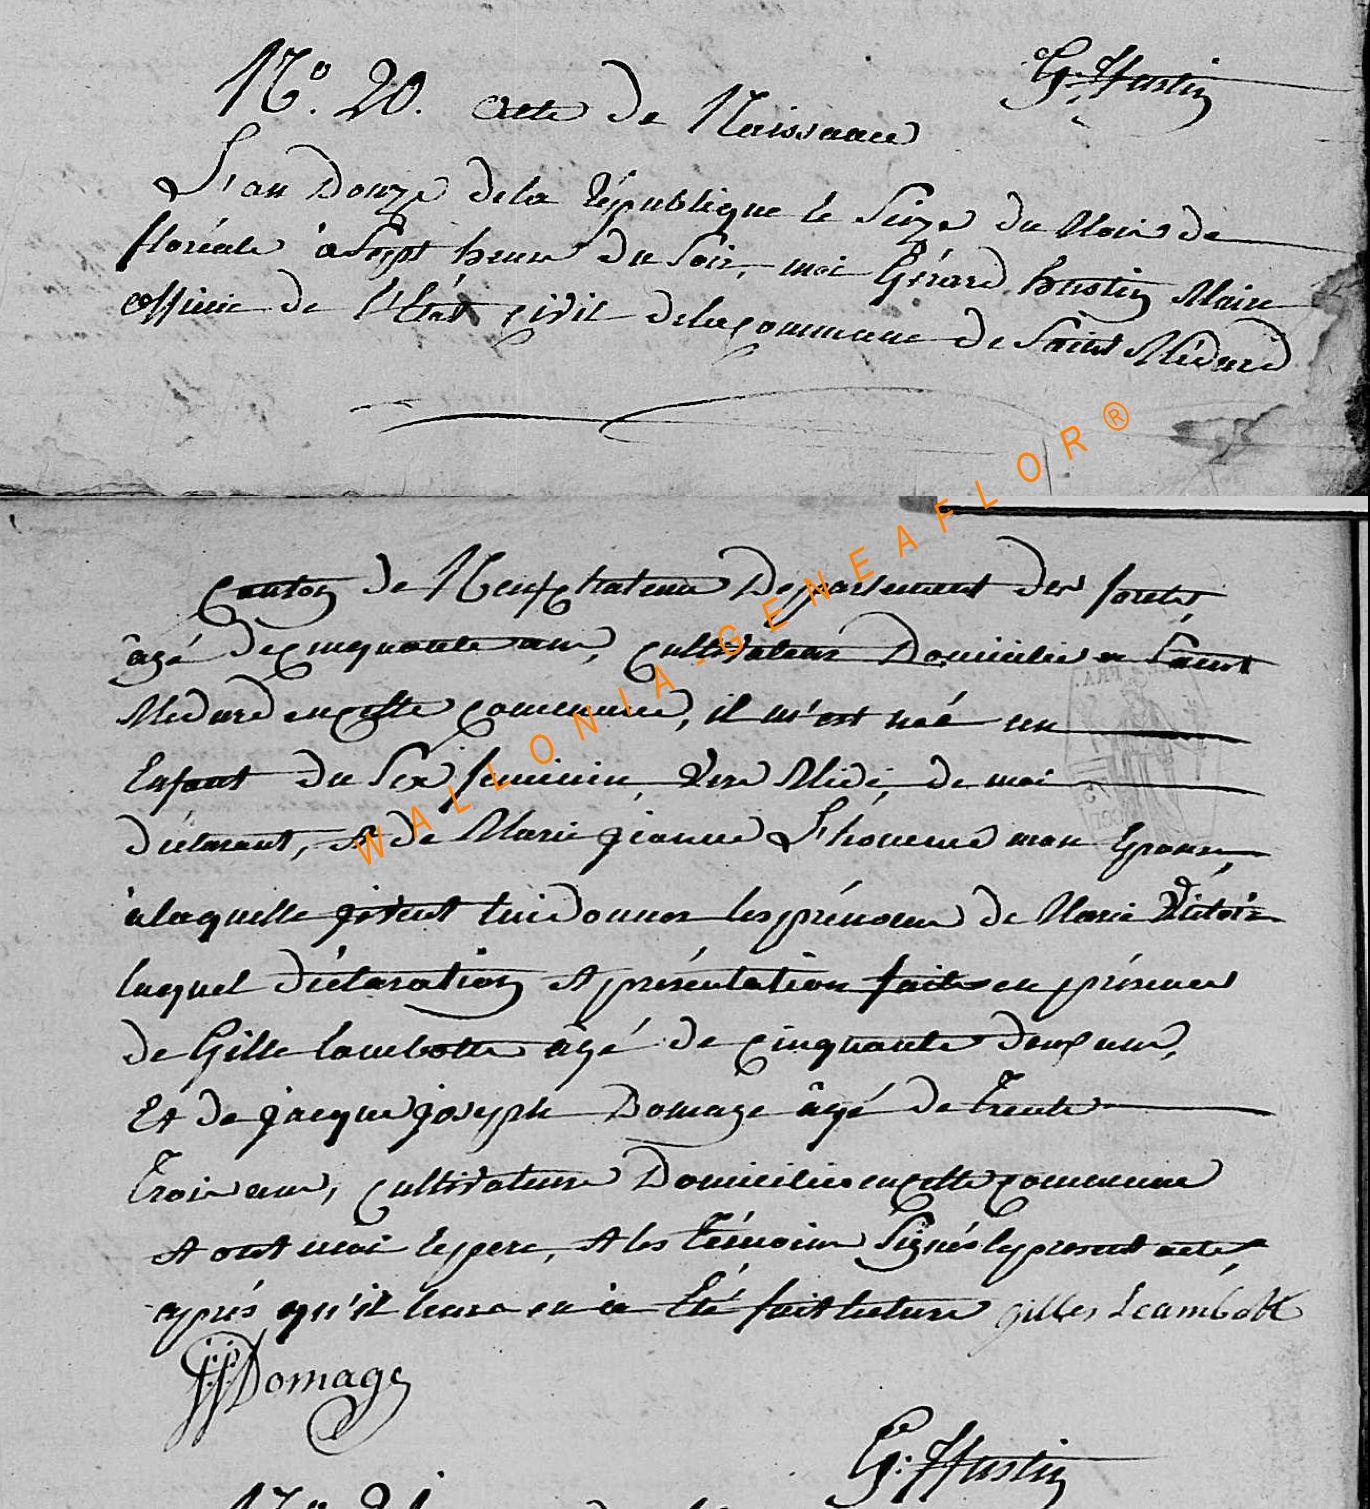 G: Hustin
N.o 20. acte de Naissance
L'an Douze de la République le Seize du Mois de
floréale à Sept heure du Soir, moi Gérard hustin Maire
officie de l'Etat civil de la commune de Saint Médard
Canton de Neufchateau Departement des forets,
âgé de cinquante ans, cultivateur Domicilié a Saint
Médard en cette commune, il m'est née un
Enfant du Sex feminin, vers Midi, de moi
déclarant, et de Marie jeanne L'homme mon Epouse,
à laquelle lui donner les prénoms de Marie Victoire
laquel déclaration et présentation fait en présence
de Gille lambotte âgé de cinquante deux ans,
Et de jacque joseph Domage âgé de Trente
Trois ans, cultivateurs Domiciliés en cette commune
et ont moi le pere, et les Témoins Signés le present acte,
après qu'il leurs en a Eté fait lecture gilles Leambott
JJ Domage
G: Hustin
N.o 21.
WALLONIA-GENEAFLOR®